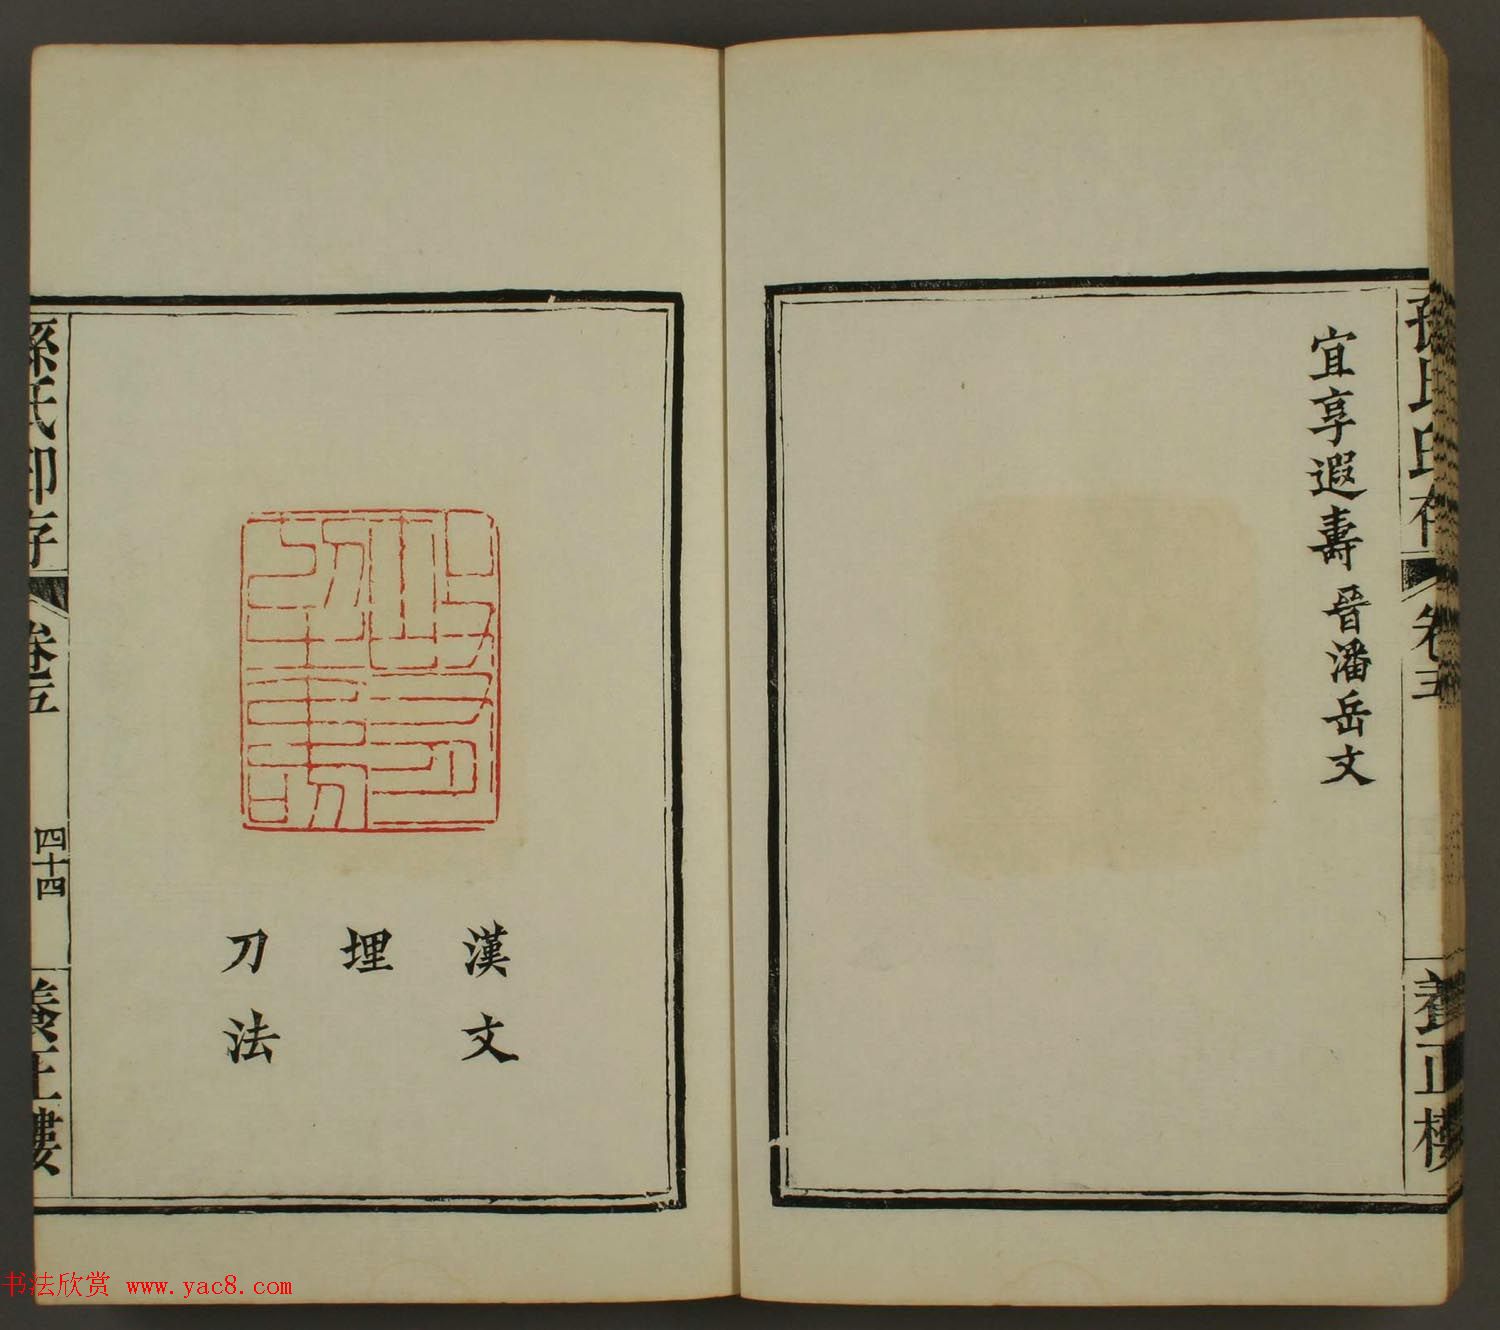 孫氏印存
卷五
養正樓
宜享遐壽 晉潘岳文
漢文
埋
刀法
孫氏印存
卷五
四十四
養正樓
书法欣赏 www.yac8.com